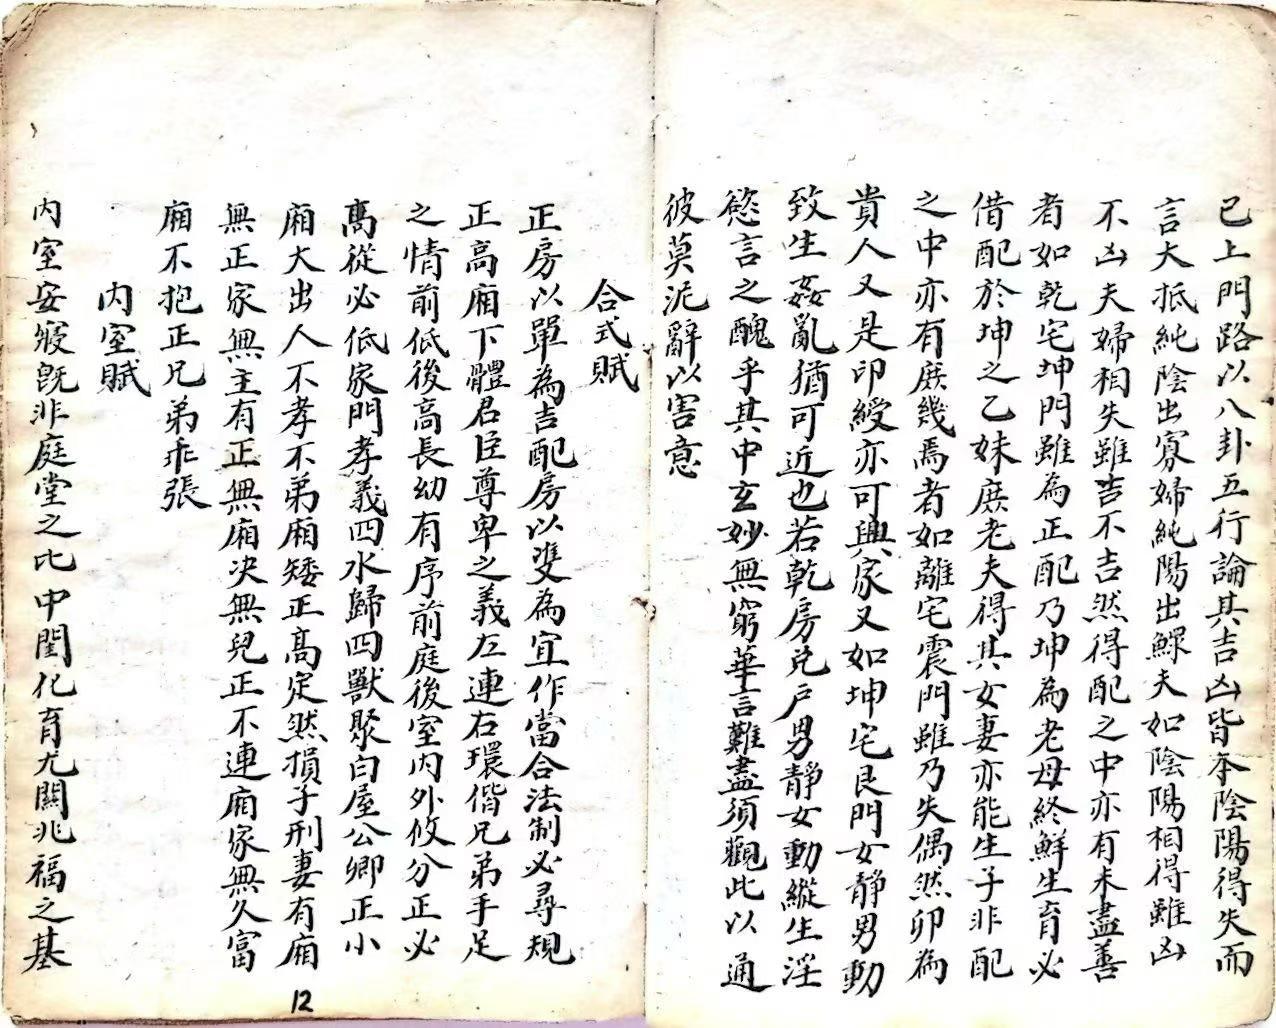 已上門路以八卦五行論其吉凶皆本陰陽得失而
言大抵純陰出寡婦純陽出鰥夫如陰陽相得雖凶
不凶夫婦相失雖吉不吉然得配之中亦有未盡善
者如乾宅坤門雖為正配乃坤為老母終鮮生育必
借配於坤之乙妹庶老夫得其女妻亦能生子非配
之中亦有庶幾焉者如離宅震門雖乃失偶然卯為
貴人又是印綬亦可興家又如坤宅艮門女静男動
致生姦亂猶可近也若乾房兌戶男静女動縱生淫
慾言之醜乎其中玄妙無窮華言難盡須觀此以通
彼莫泥辭以害意
合式賦
正房以單為吉配房以雙為宜作當合法制必尋規
正高廂下體君臣尊卑之義左連右環偕兄弟手足
之情前低後高長幼有序前庭後室内外攸分正必
高從必低家門孝義四水歸四獸聚白屋公卿正小
廂大出人不孝不弟廂矮正高定然損子刑妻有廂
無正家無主有正無廂决無兒正不連廂家無久富
廂不抱正兄弟乖張
内室賦
内室安寢旣非庭堂之比中閨化育尤關兆福之基
12